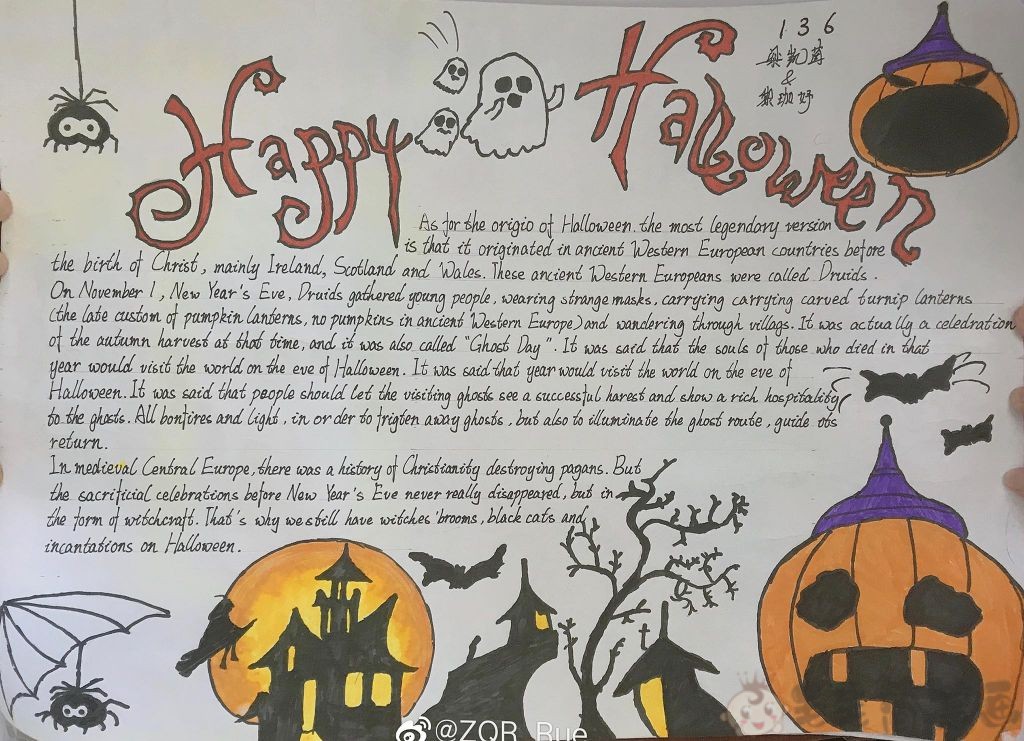 Happy Halloween
136
梁凯茵
&
珈妤
As for the origio of Halloween. the most legendary version
is that it originated in ancient Western European countries before
the birth of Christ, mainly Ireland, Scotland and Wales. These ancient Western Europeans were called Druids.
On November 1, New Year's Eve, Druids gathered young people, wearing strange masks, carrying carrying carved turnip lanterns
(the late custom of pumpkin lanterns, no pumpkins in ancient Western Europe) and wandering through villags. It was actually a celedration
of the autumn harvest at that time, and it was also called "Ghost Day". It was said that the souls of those who died in that
year would visit the world on the eve of Halloween. It was said that year would visit the world on the eve of
Halloween. It was said that people should let the visiting ghosts see a successful harest and show a rich hospitality
to the ghosts. All bonfires and light, in or der to frigten away ghosts, but also to illuminate the ghost route, guide ots
return.
In medieval Central Europe, there was a history of Christianity destroying pagans. But
the sacrificial celebrations before New Year's Eve never really disappeared, but in
the form of witchcraft. That's why we still have witches' brooms, black cats and
incantations on Halloween.
@ZQR_Rue